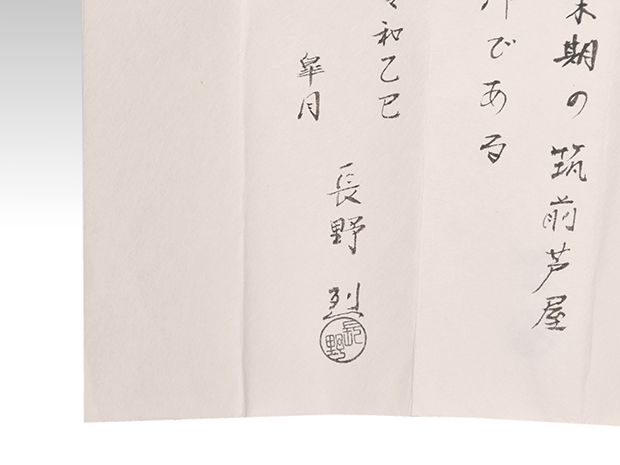 末期の筑前芦屋
である
令和乙巳
皐月
長野 烈
長野